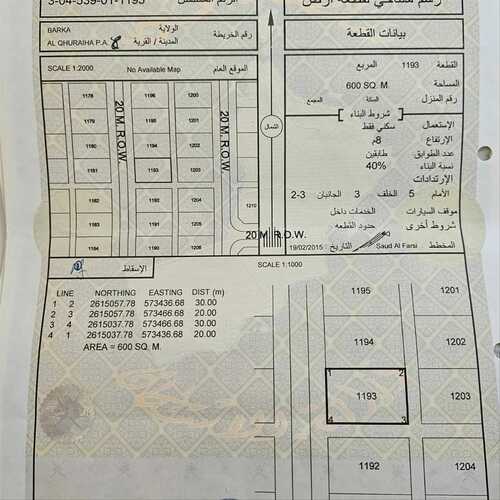 3-04-539-01-1193
BARKA
الولاية
AL QHURAIHA P.A.
المدينة / القرية
رقم الخريطة
بيانات القطعة
SCALE 1:2000
No Available Map
الموقع العام
القطعة 1193 المربع
المساحة 600 SQ. M.
رقم المنزل السكة المجمع
شروط البناء
الإستعمال سكني فقط
الإرتفاع 8م
عدد الطوابق طابقين
نسبة البناء 40%
الإرتدادات
الأمام 5 الخلف 3 الجانبان 2-3
موقف السيارات الخدمات داخل
شروط أخرى حدود القطعه
المخطط Saud Al Farsi التاريخ 19/02/2015
الشمال
1178 1196 1205
1179 1195
1180 1194
1181 1193
1182 1192
1183 1191
1184 1190 1206
1210
20 M. R.O.W.
20 M. R.O.W.
20 M. R.O.W.
الإسقاط
SCALE 1:1000
LINE NORTHING EASTING DIST (m)
1 2 2615057.78 573436.68 30.00
2 3 2615057.78 573466.68 20.00
3 4 2615037.78 573466.68 30.00
4 1 2615037.78 573436.68 20.00
AREA = 600 SQ. M.
1195 1201
1194 1202
1 2
1193 1203
4 3
1192 1204